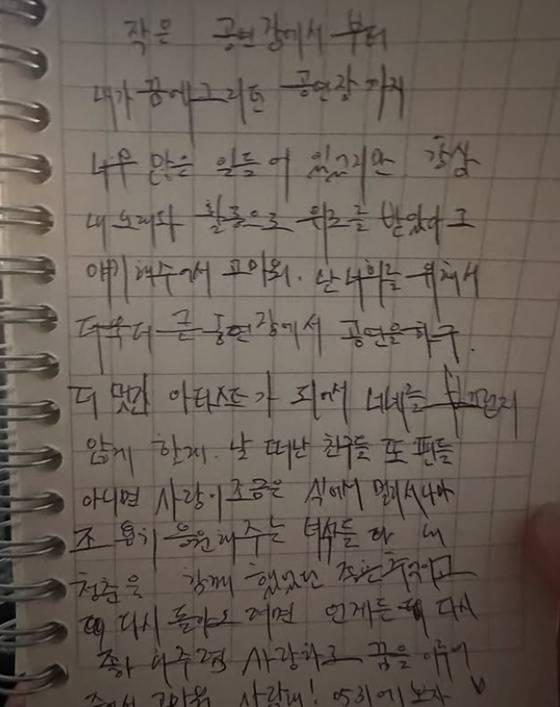 작은 공연장에서 부터
내가 꿈에그리던 공연장 까지
너무 많은 일들이 있었지만 항상
내 노래와 활동으로 위로를 받았다고
얘기해줘서 고마워. 난 너희를 위해서
더욱더 큰 공연장에서 공연을하구.
더 멋진 아티스트가 되어서 너네를 부끄럽지
않게 할게. 날 떠난 친구들 또 팬들
아니면 사랑이 조금은 식어서 멀리서나마
조용히 응원해주는 녀석들 다 내
청춘을 함께 했었던 좋은추억이고
다시 돌아오려면 언제든 다시
좋아해주렴 사랑하고 꿈을 이루어
줘서 고마워 사랑해! 에 보자